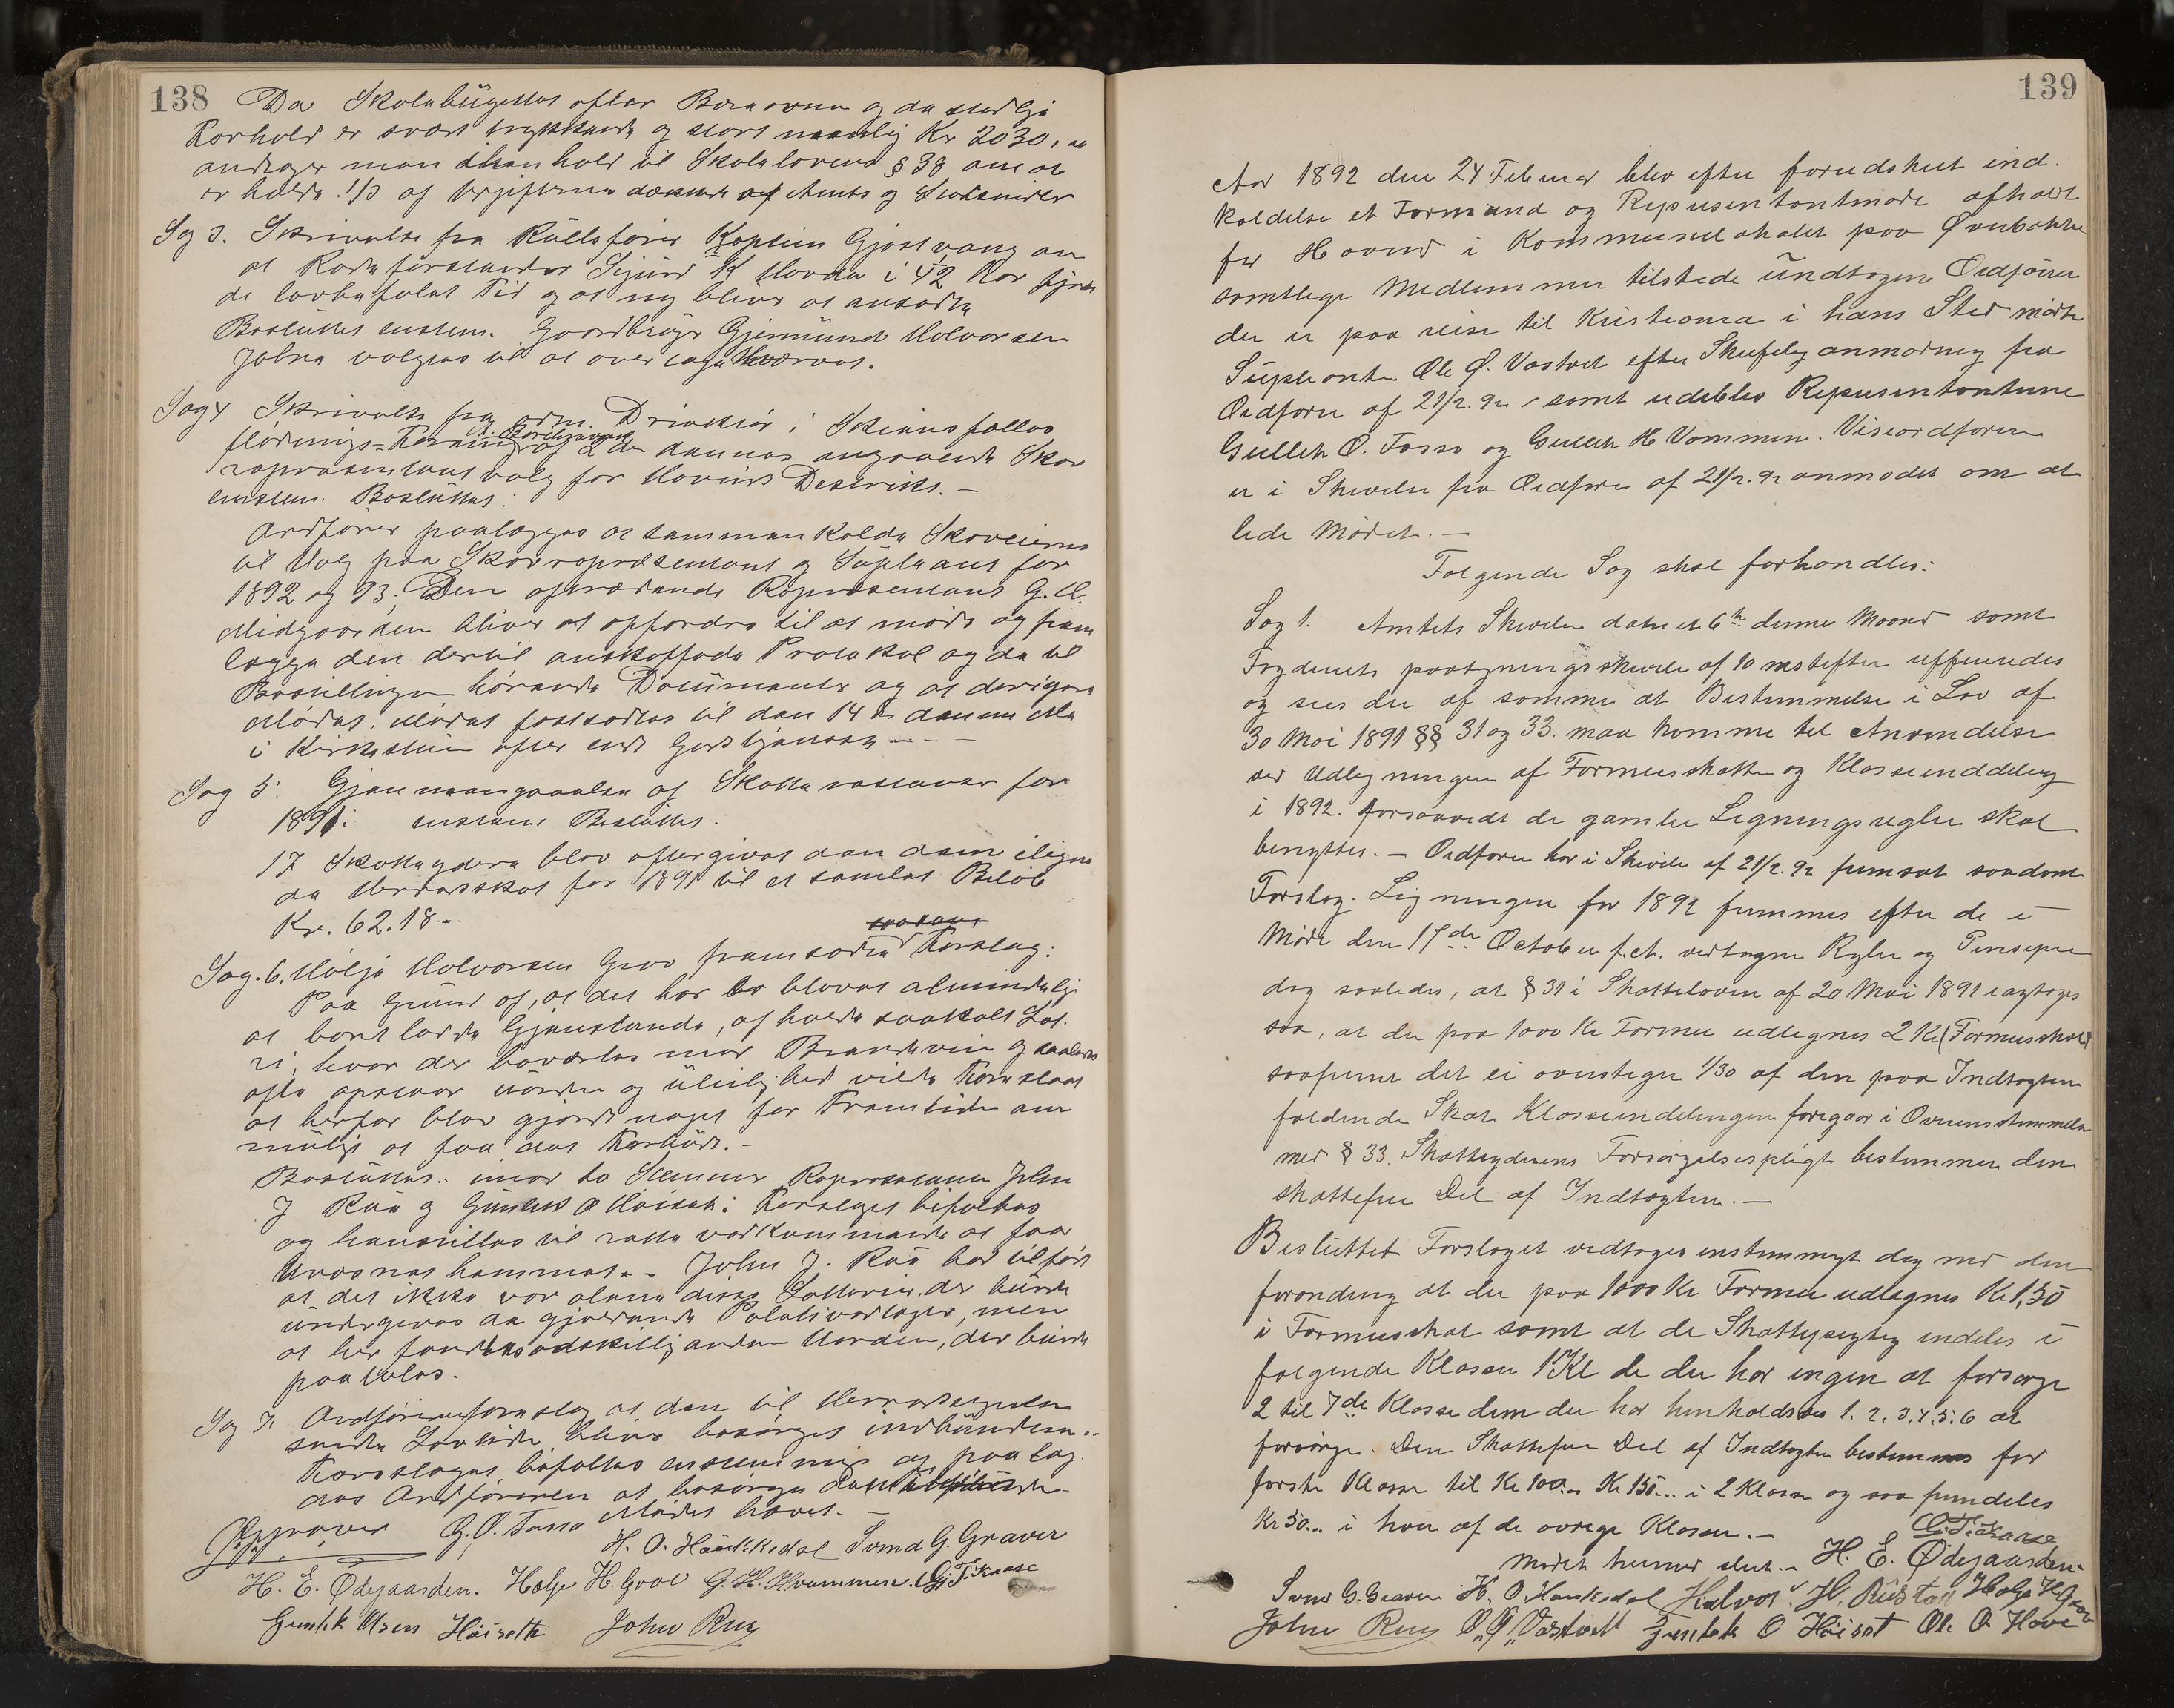 138
Da Skolebügettet efter Bereovne og de stedlige
Forhold er svært trykkende og stort nemlig Kr 2030,
andrager man i henhold til Skolelovens § 38 om at
erholde 1/3 af Utgifterne dækkede af Amts og Statsmidler
Sag 3. Skrivelse fra Rüllefører Kaptein Gjøstvang om
at Rodeforstander Sjurd K Hovde i 42 Aar tjent
de lovbefalet Tid og at ny bliver at ansætte
Besluttet enstem. Gaardbrüger Gjermund Halvorsen
Jobra valgtes til at overtage Hvervet.
Sag 4 Skrivelse fra adm. Direktør i Skiensfallos
flødnings-Forening af 2 den dennes angaaende Skov
repræsentant valg for Hovins Destrikt.
enstem. Besluttet:
Ordfører paalægges at sammenkalde Skoveierne
til Valg paa Skovrepræsentant og Süpleant for
1892 og 93. Den aftrædende Repræsentant G. H.
Midgaarden bliver at opfordre til at møde og frem
lægge den dertil anskaffede Protokol og de til
Bestillingen hørende Documenter og at derigere
Mødet. Mødet fastsættes til den 14 ds denne Md
i Kirkestuen efter endt Gudstjeneste
Sag 5. Gjennemgaaelse af Skatterestancer for
1891: enstem Besluttet:
17 Skatteydere blev eftergivet den dem ilignede
Herredsskat for 1891 til et samlet Beløb
Kr. 62.18
Sag. 6. Holje Halvorsen Grov fremsatte Forslag:
Paa Grund af, at det har blevet almindelig
at bortlodde Gjenstande, af holde saakalt Lot
ri, hvor der beværtes med Brændevin og saaledes
ofte opstaar uorden og uleilighed vilde Foreslaa
at herfor blev gjordt noget for Fremtiden om
mulig at faa det Forbudt.
Besluttet: imod to Stemmer Repræsentan John
J Rüe og Gunlek O Høiset: Forslaget bifaldtes
og henstilles til rette vedkommende at faa
Uvæsnet hemmet. John J. Rüe har tilført
at det ikke var alene disse Lotterier der bürde
undergives de gjældende Politivedtæger, men
at her fandtes adskillig anden Uorden, der bürde
paatales.
Sag 7. Ordførerenforeslog at den til Herredsstyrelsen
sendte Lovtidende bliver besørget indbunden
Forslaget bifaltes enstemmig og paalag
des Ordføreren at besørge dette
Mødet hævet.
G. O. Fasso H. O. Haukkedal Svend G. Graver
H. E. Ødegaarden. Holje H. Grov G. H. Vrammen. G. T. Kaase
Gunlek Olsen Høisett John Rue
139
Aar 1892 den 24 Februar blev efter forudskeet ind.
kaldelse et Formand og Repræsentantmøde afholdt
for Hovind i Kommunelokalet paa Øvrebakke
samtlege Medlemmer tilstede undtagen Ordfører
der er paa reise til Kristiania i hans Sted mødte
Süpleanten Ole Ø. Vastveit efter Skriftlig anmodning fra
Ordfører af 21/2. 92, samt udeblev Repræsentantene
Gullek O. Fosso og Gullek H Vammen. Viseordføren
er i Skrivelse fra Ordføren af 21/2. 92 anmodet om at
lede Mødet. —
Følgende Sag skal forhandles:
Sag 1. Amtets Skrivelse datert 6te denne Maaned samt
Fogderiets paategningsskrivelse af 10 næstefter refferedes
og sees der af samme at Bestemmelse i Lov af
30 Mai 1891 §§ 31 og 33. maa komme til Anvendelse
ved Udlegningen af Formueskatten og Klasseinddeling
i 1892. forsaavidt de gamle Legningsregler skal
benyttes. — Ordfører har i Skrivelse af 21/2. 92 fremsat saadant
Forslag. Ligningen for 1892 fremmes efter de i
Møde den 17de October f.A. vedtagne Regler og Prinsiper
dog saaledes, at § 31 i Skatteloven af 20 Mai 1891 iagtages
saa, at der paa 1000 Kr Formue udlegnes 2 Kr (Formueskat)
saafremt det ei overstiger 1/30 af den paa Indtægten
faldende Skat. Klasseindelingen foregaar i Overensstemmelse
med § 33. Skatteyderens Forsørgelsespligt bestemmer den
skattefrie Del af Indtægten. —
Besluttet Forslaget vedtages enstemmigt dog med den
forandring at der paa 1000 Kr Formue udlegnes Kr 1,50
i Formueskat samt at de Skattepligtig indeles i
følgende Klasser 1ste Kl de der har ingen at forsørge
2 til 7de Klasse dem der har henholdsvis 1. 2. 3. 4. 5. 6 at
forsørge. Den Skattefrie Del af Indtægten bestemmes for
første Klasse til Kr 100.. Kr 150... i 2 Klasse og saa fremdeles
Kr 50... i hver af de øvrige Klasser. —
G. T. Kaase
Mødet hermed slut. — H. E. Ødegaarden
Svend G. Graver H. O. Haukedal Halvor H. Rustad Holje H. Grov
John Rue O. Ø. Vastveit Gunlek O Høiset Ole O Hove